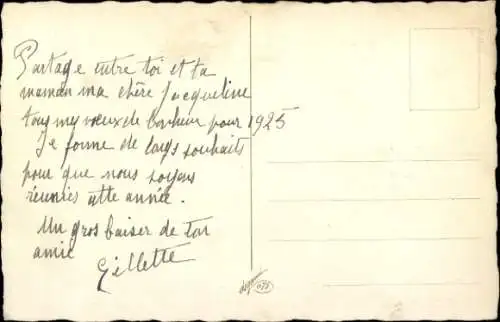 Partage entre toi et ta
maman ma chère Jacqueline
tous mes voeux de bonheur pour 1925
Je forme de larges souhaits
pour que nous soyons
réunies cette année.
Un gros baiser de ton
amie
Gillette